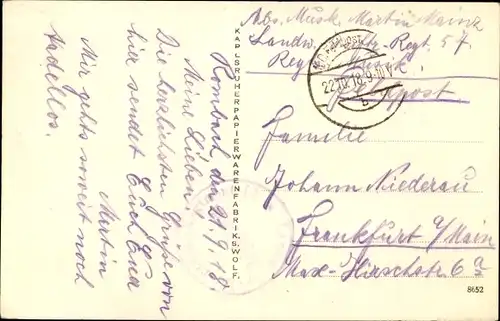 Abs. Musk. Martin Mainz
Landw. Inftr. Regt. 57.
Reg.
Feldpost
22.10.18.9-10V.
b
Familie
Johann Niederau
Frankfurt a/Main
Max-Hirschstr. 6 a
8652
KARLSRUHER PAPIERWARENFABRIK S. WOLF.
Rombach den 21/9 18.
Meine Lieben!
Die herzlichsten Grüße von
hier sendet Euch Euer
Martin
Mir gehts soweit noch
tadellos.